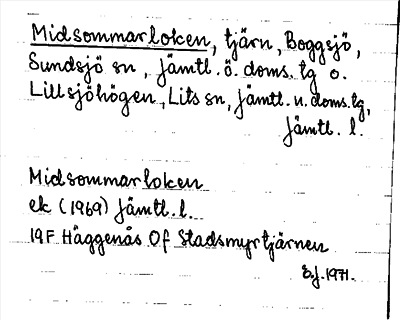 Midsommarloken, tjärn, Boggsjö,
Sundsjö sn, Jämtl. ö. doms. tg o.
Lillsjöhögen, Lits sn, Jämtl. n. doms. tg,
Jämtl. l.
Midsommarloken
ek (1969) Jämtl. l.
19F Häggenås Of Stadsmyrtjärnen
E.J. 1971.